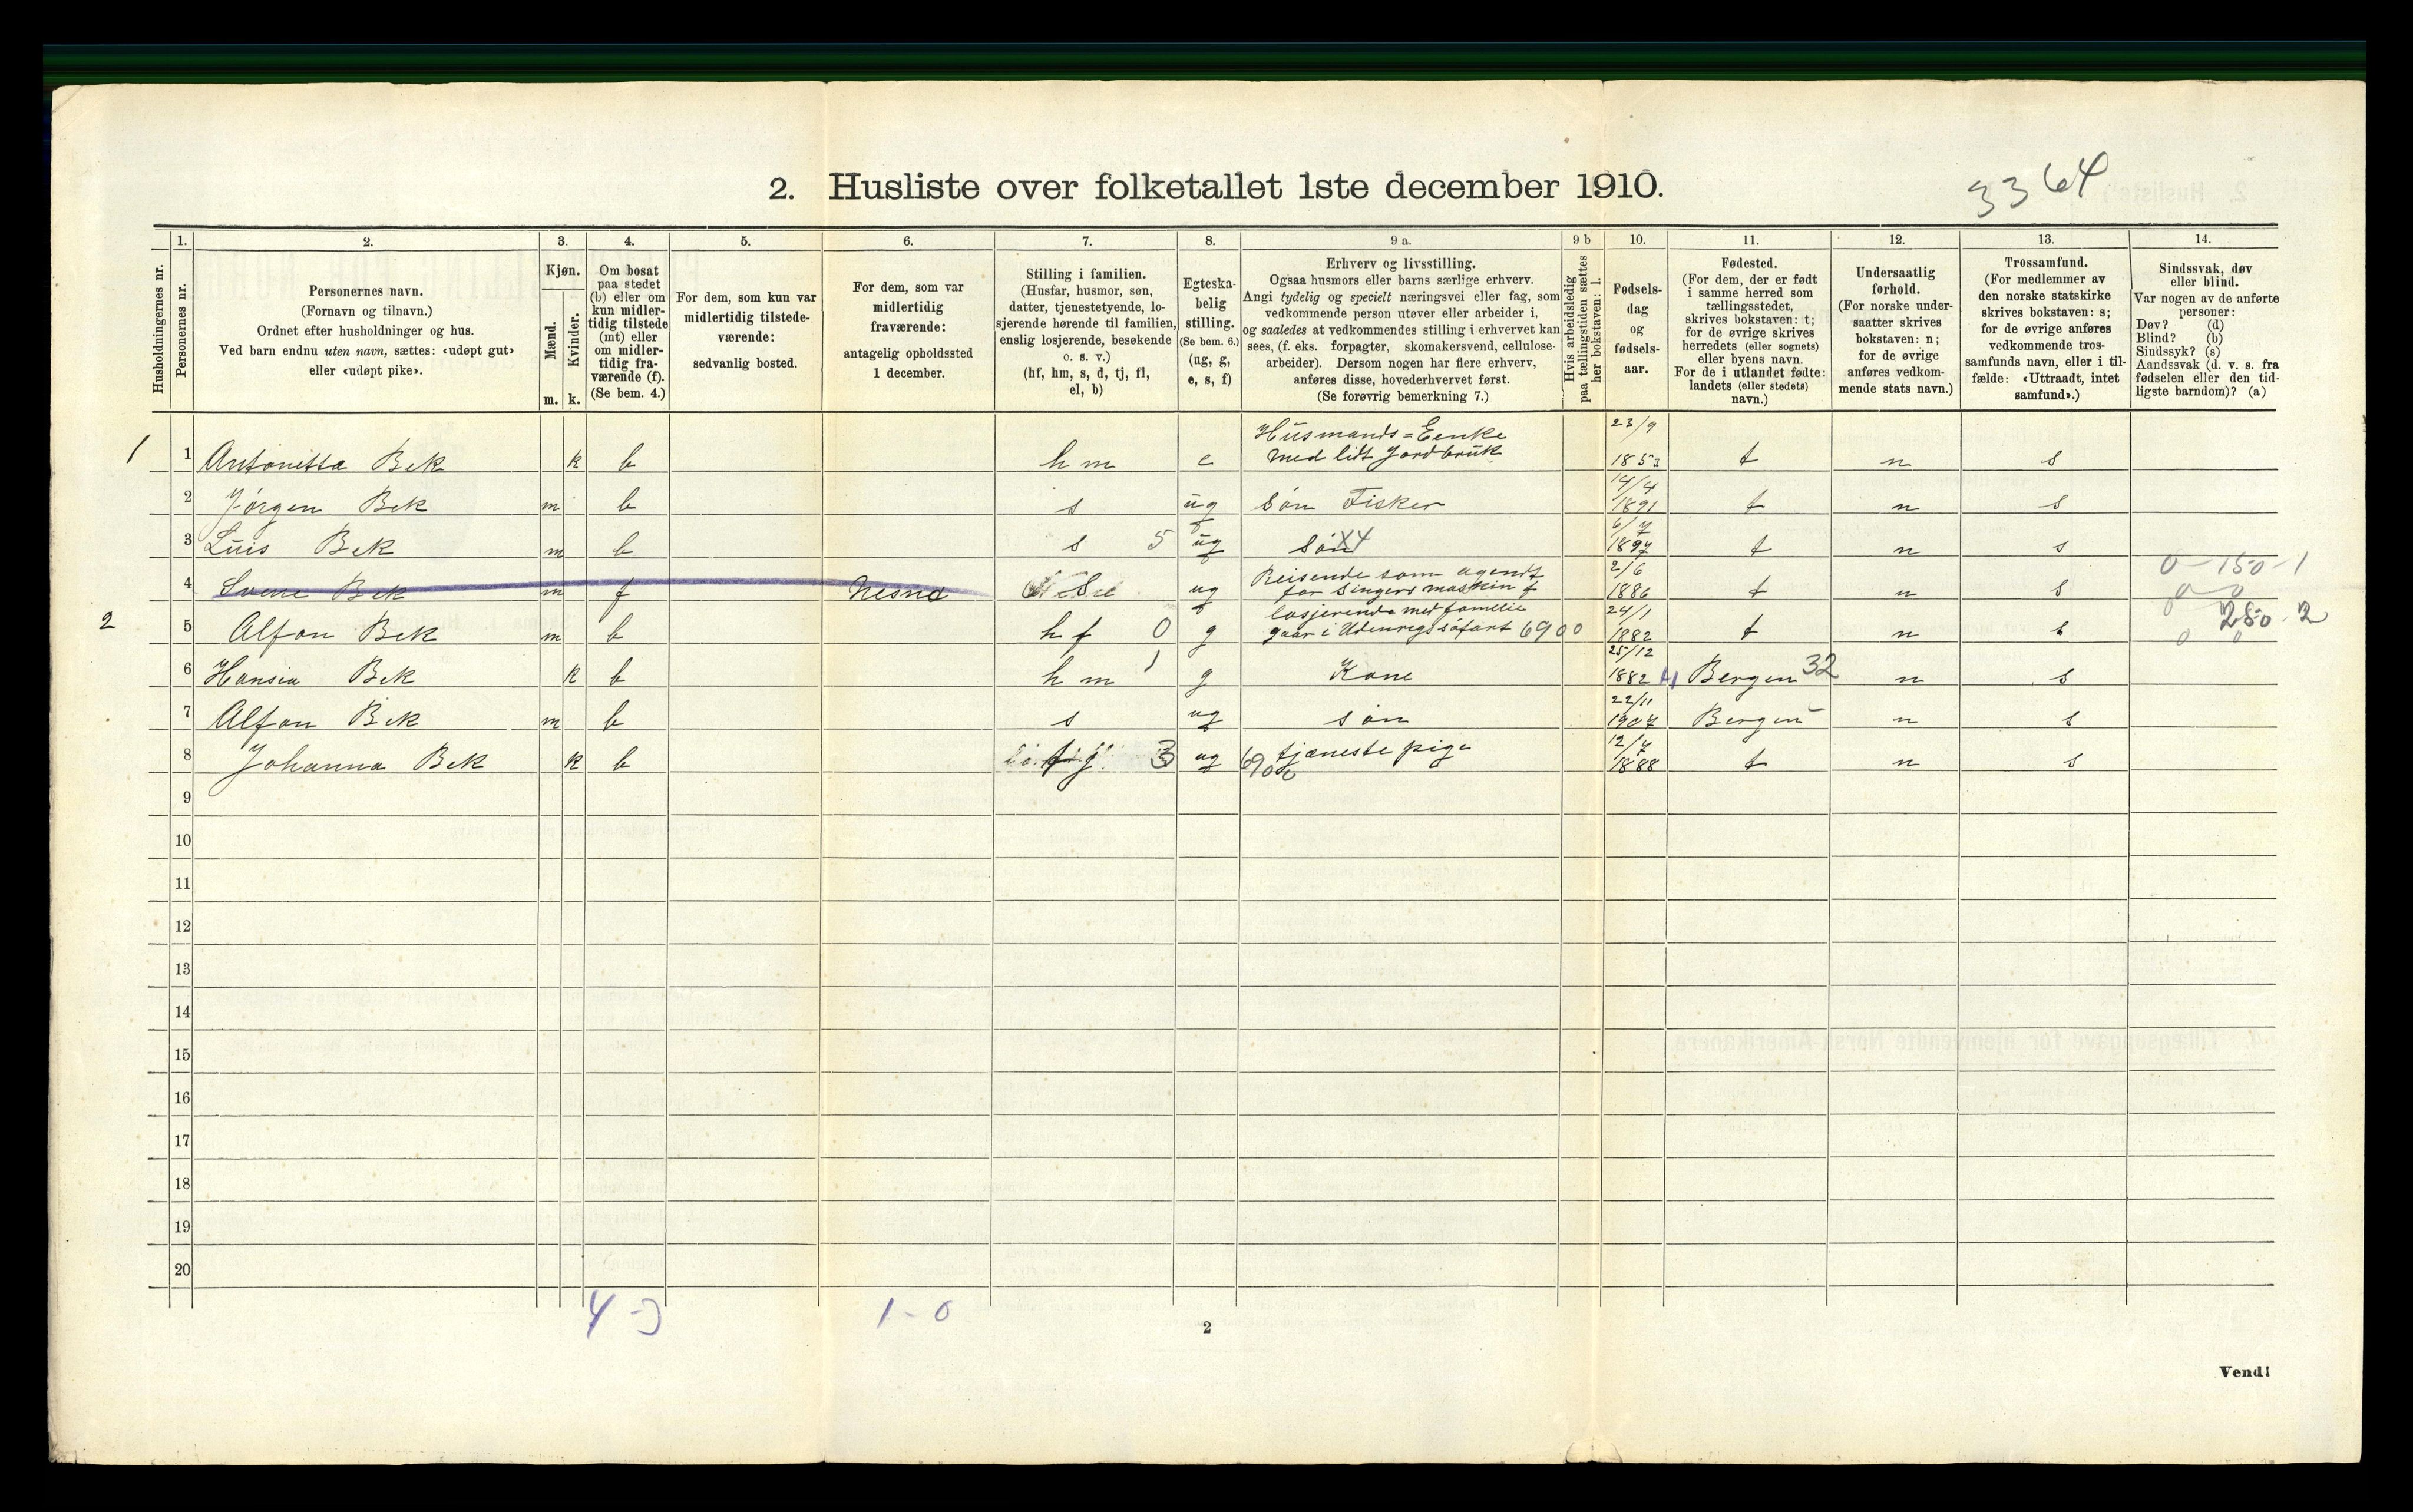 2. Husliste over folketallet 1ste december 1910.
3364
1. 2. 3. 4. 5. 6. 7. 8. 9 a. 9 b 10. 11. 12. 13. 14.
Husholdningernes nr.
Personernes nr.
Personernes navn.
(Fornavn og tilnavn.)
Ordnet efter husholdninger og hus.
Ved barn endnu uten navn, sættes: «udøpt gut»
eller «udøpt pike».
Kjøn.
Mænd.
Kvinder.
m. k.
Om bosat
paa stedet
(b) eller om
kun midler-
tidig tilstede
(mt) eller
om midler-
tidig fra-
værende (f).
(Se bem. 4.)
For dem, som kun var
midlertidig tilstede-
værende:
sedvanlig bosted.
For dem, som var
midlertidig
fraværende:
antagelig opholdssted
1 december.
Stilling i familien.
(Husfar, husmor, søn,
datter, tjenestetyende, lo-
sjerende hørende til familien,
enslig losjerende, besøkende
o. s. v.)
(hf, hm, s, d, tj, fl,
el, b)
Egteska-
belig
stilling.
(Se bem. 6.)
(ug, g,
e, s, f)
Erhverv og livsstilling.
Ogsaa husmors eller barns særlige erhverv.
Angi tydelig og specielt næringsvei eller fag, som
vedkommende person utøver eller arbeider i,
og saaledes at vedkommendes stilling i erhvervet kan
sees, (f. eks. forpagter, skomakersvend, cellulose-
arbeider). Dersom nogen har flere erhverv,
anføres disse, hovederhvervet først.
(Se forøvrig bemerkning 7.)
Hvis arbeidsledig
paa tællingstiden sættes
her bokstaven: l.
Fødsels-
dag
og
fødsels-
aar.
Fødested.
(For dem, der er født
i samme herred som
tællingsstedet,
skrives bokstaven: t;
for de øvrige skrives
herredets (eller sognets)
eller byens navn.
For de i utlandet fødte:
landets (eller stedets)
navn.)
Undersaatlig
forhold.
(For norske under-
saatter skrives
bokstaven: n;
for de øvrige
anføres vedkom-
mende stats navn.)
Trossamfund.
(For medlemmer av
den norske statskirke
skrives bokstaven: s;
for de øvrige anføres
vedkommende tros-
samfunds navn, eller i til-
fælde: «Uttraadt, intet
samfund».)
Sindssvak, døv
eller blind.
Var nogen av de anførte
personer:
Døv? (d)
Blind? (b)
Sindssyk? (s)
Aandssvak (d. v. s. fra
fødselen eller den tid-
ligste barndom)? (a)
Husmands=Eenke 23/9
1 1 Antonitta Bek k b hm e med lidt Jordbruk 1853 t n s
14/4
2 Jørgen Bek m b s ug Søn Fisker 1891 t n s
6/7
3 Luis Bek m b s 5 ug Søn X4 1897 t n s
0-150-1
Reisende som agendt 2/6
4 Bek m f Nesna ug for Singers maskin f 1886 t n s
0 0
losjerende med familie 24/1
2 5 Alfon Bek m b hf 0 g gaar i Udenrigssøfart 6900 1882 t n s 250-2
0 0
25/12
6 Hansia Bek k b hm 1 g Kone 1882 Bergen 32 n s
22/11
7 Alfon Bek m b s ug søn 1907 Bergen n s
12/7
8 Johanna Bek k b tj 3 ug 6900 tjæneste pige 1888 t n s
9
10
11
12
13
14
15
16
17
18
19
20
4-3 1-0
2
Vend!